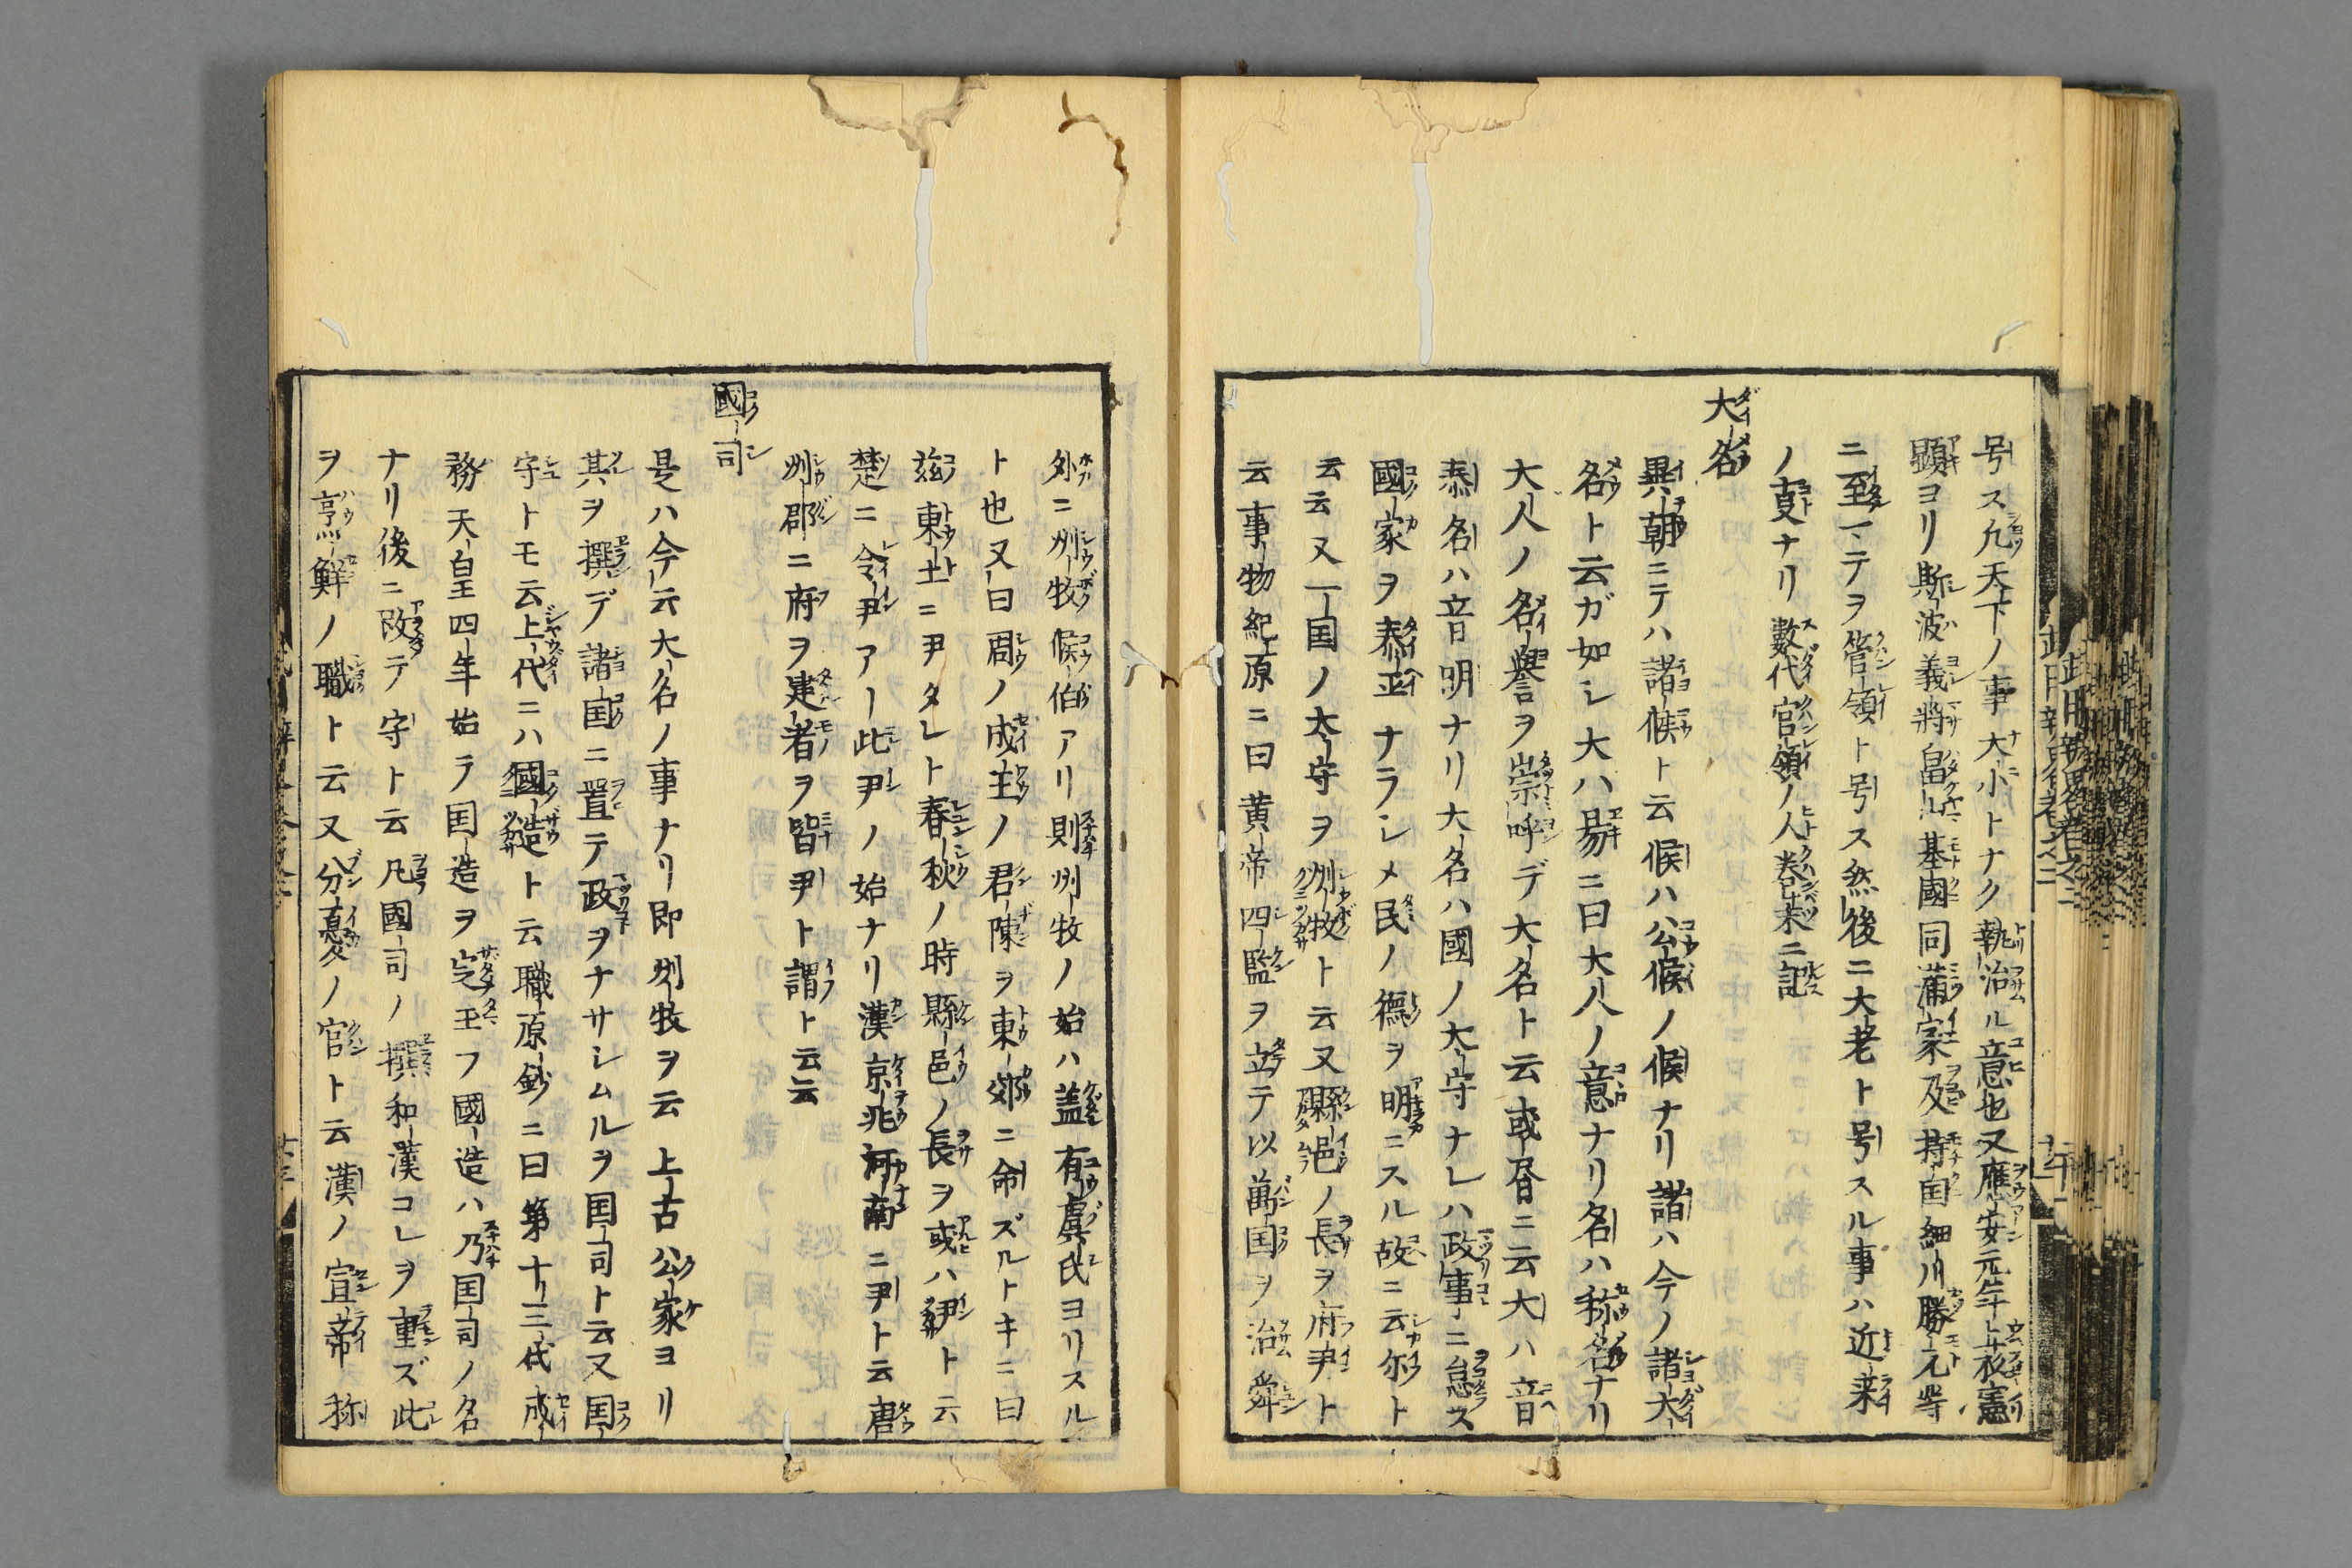 号ス凢天下ノ事大小トナク執治ル意也又應安元年上杦憲
顕ヨリ斯波義将畠山基國同蒲家及持国細川勝元等
ニ至マテヲ管領ト号ス然後ニ大老ト号スル事ハ近来
ノ叓ナリ數代官領ノ人巻末ニ記
大名
異朝ニテハ諸候ト云候ハ公候ノ候ナリ諸ハ今ノ諸大
名ト云ガ如シ大ハ易ニ曰大人ノ意ナリ名ハ称名ナリ
大人ノ名譽ヲ崇呼デ大名ト云或昏ニ云大ハ音
泰名ハ音明ナリ大名ハ國ノ大守ナレハ政事ニ怠ス
國家ヲ泰正ナラシメ民ノ德ヲ明ニスル故ニ云尓ト
云云又一国ノ太守ヲ州牧ト云又縣邑ノ長ヲ府尹ト
云事物紀原ニ曰黄帝四監ヲ立テ以萬国ヲ治舜
外ニ州牧候伯アリ則州牧ノ始ハ蓋有虞氏ヨリスル
ト也又曰周ノ成王ノ君陳ヲ東郊ニ命ズルトキニ曰
茲東土ニ尹タレト春秋ノ時縣邑ノ長ヲ或ハ尹ト云
楚ニ令尹アー此尹ノ始ナリ漢京兆河南ニ尹ト云唐
州郡ニ府ヲ建者ヲ皆尹ト謂ト云云
國司
是ハ今云大名ノ事ナリ即州牧ヲ云上古公家ヨリ
其ヲ撰デ諸国ニ置テ政ヲナサシムルヲ国司ト云又国
守トモ云上代ニハ國造ト云職原鈔ニ曰第十三代成
務天皇四年始テ国造ヲ定玉フ國造ハ乃国司ノ名
ナリ後ニ改テ守ト云凡國司ノ撰和漢コレヲ重ズ此
ヲ烹鮮ノ職ト云又分憂ノ官ト云漢ノ宣帝称